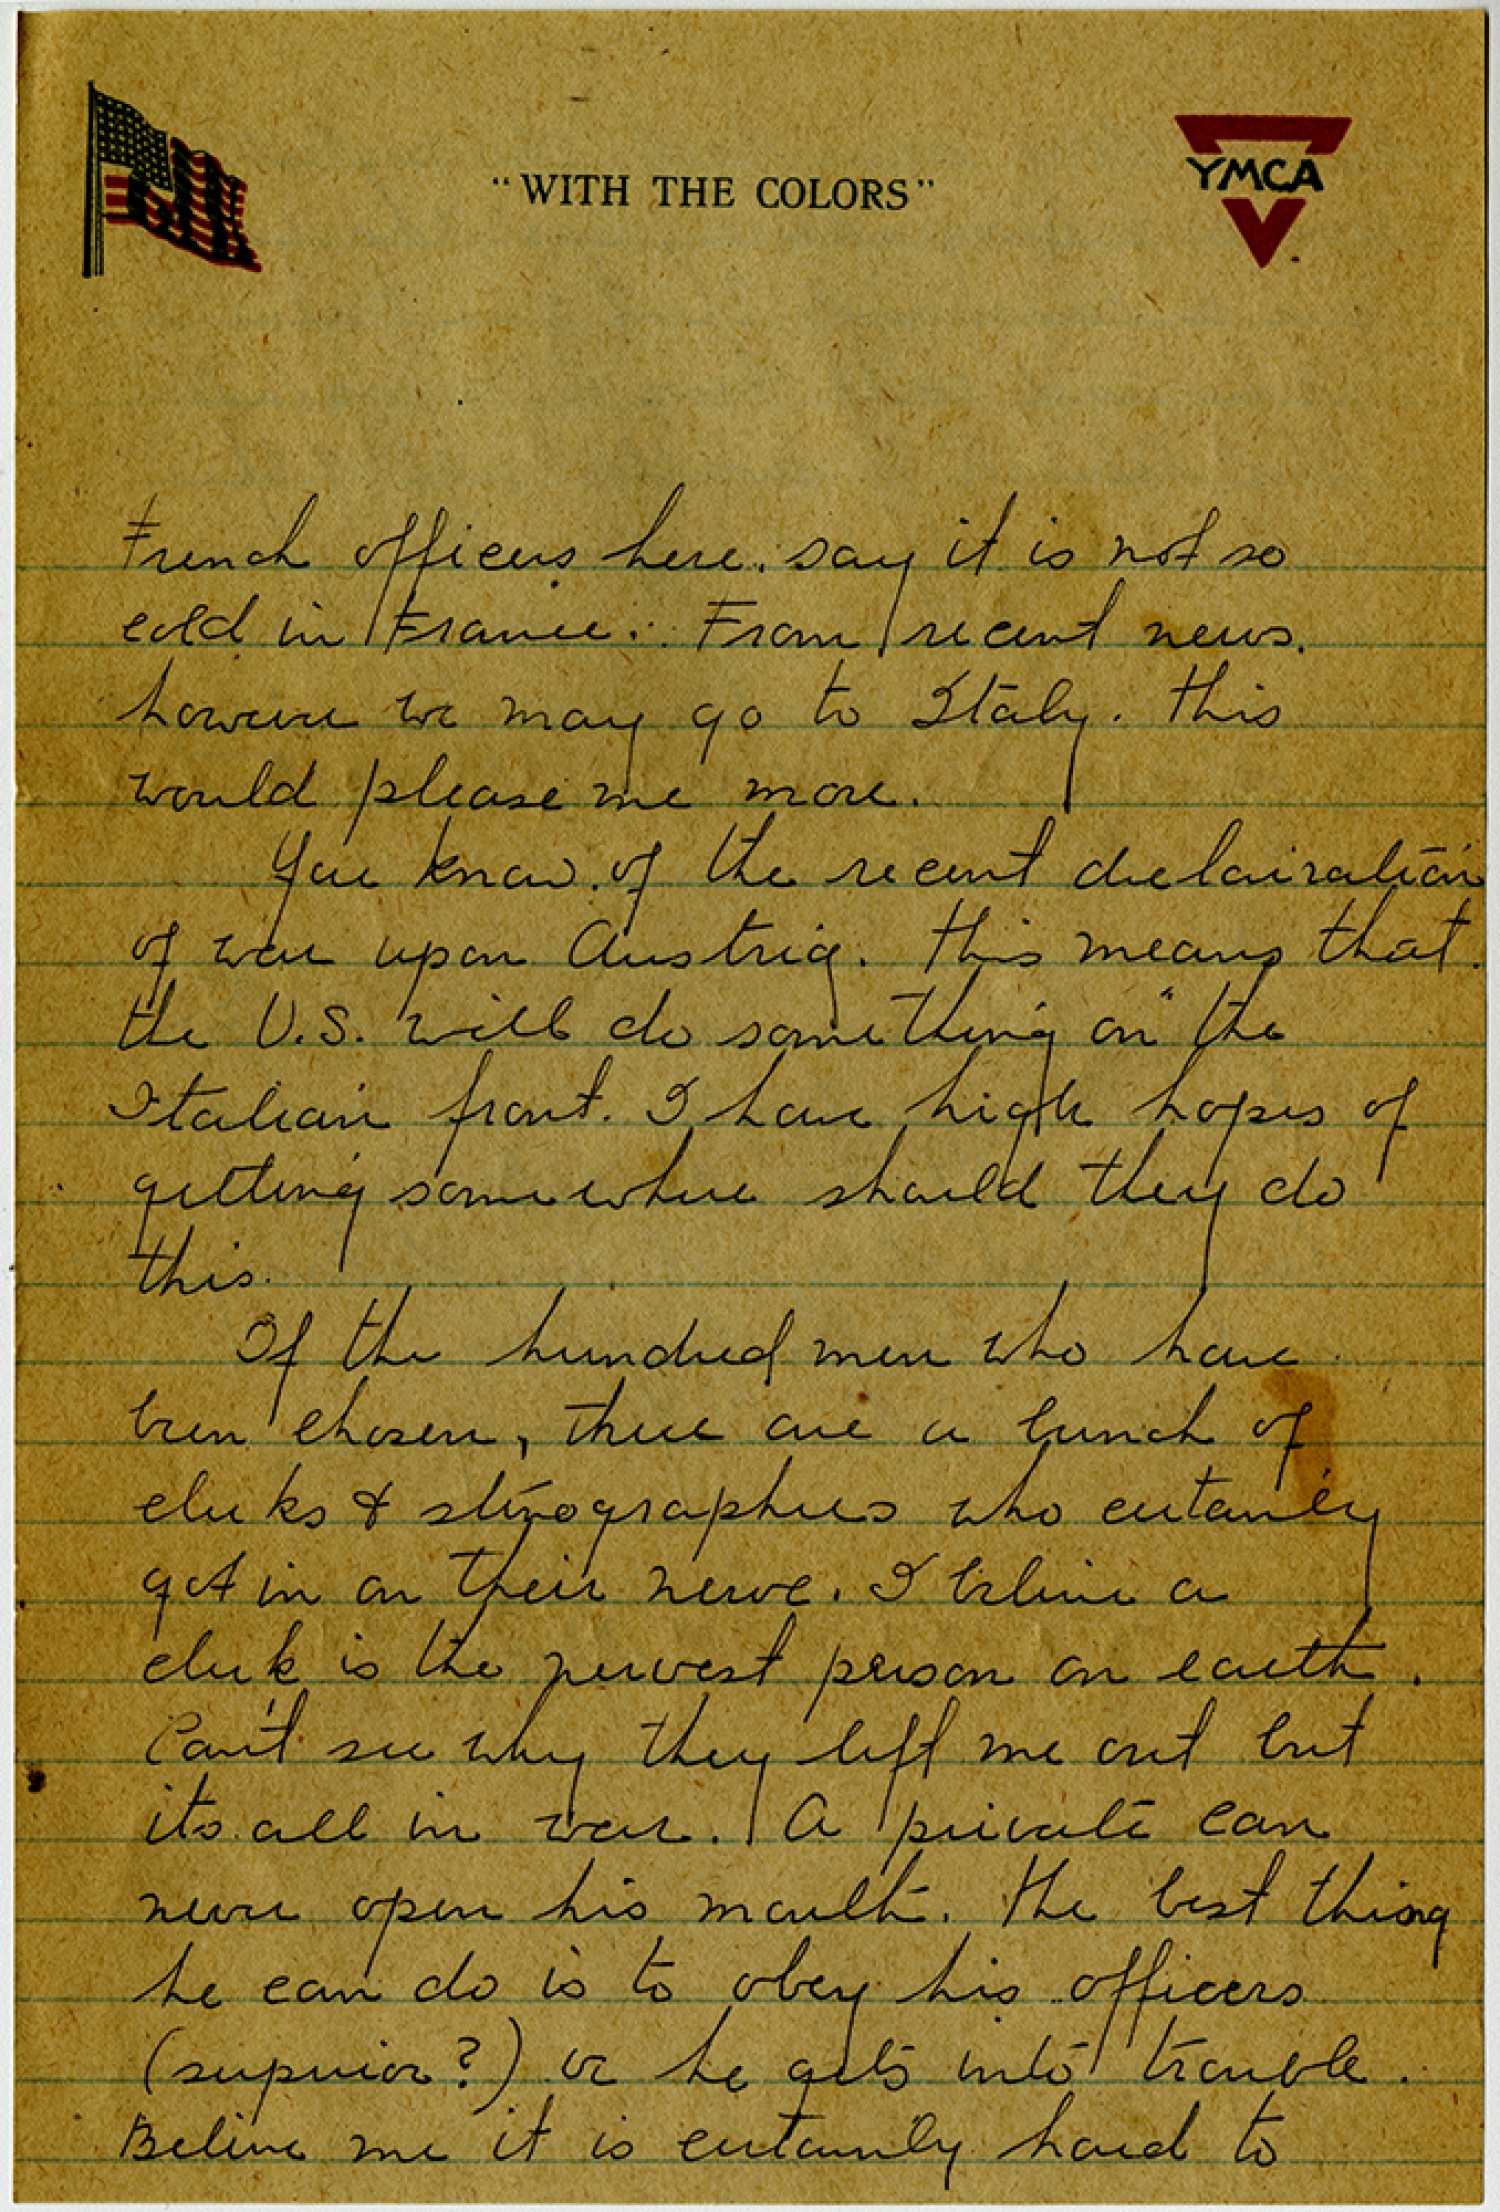 "WITH THE COLORS"
YMCA
French officers here. say it is not so
cold in France. From recent news.
however we may go to Italy. This
would please me more.
You know of the recent declairation
of war upon Austria. This means that
the U.S. will do something on the
Italian front. I have high hopes of
getting somewhere should they do
this.
Of the hundred men who have
been chosen, there are a bunch of
clerks & stenographers who certainly
got in on their nerve. I believe a
clerk is the nerviest person on earth.
Can't see why they left me out but
its all in war. A private can
never open his mouth. The best thing
he can do is to obey his officers
(superior?) or he gets into trouble.
Believe me it is certainly hard to